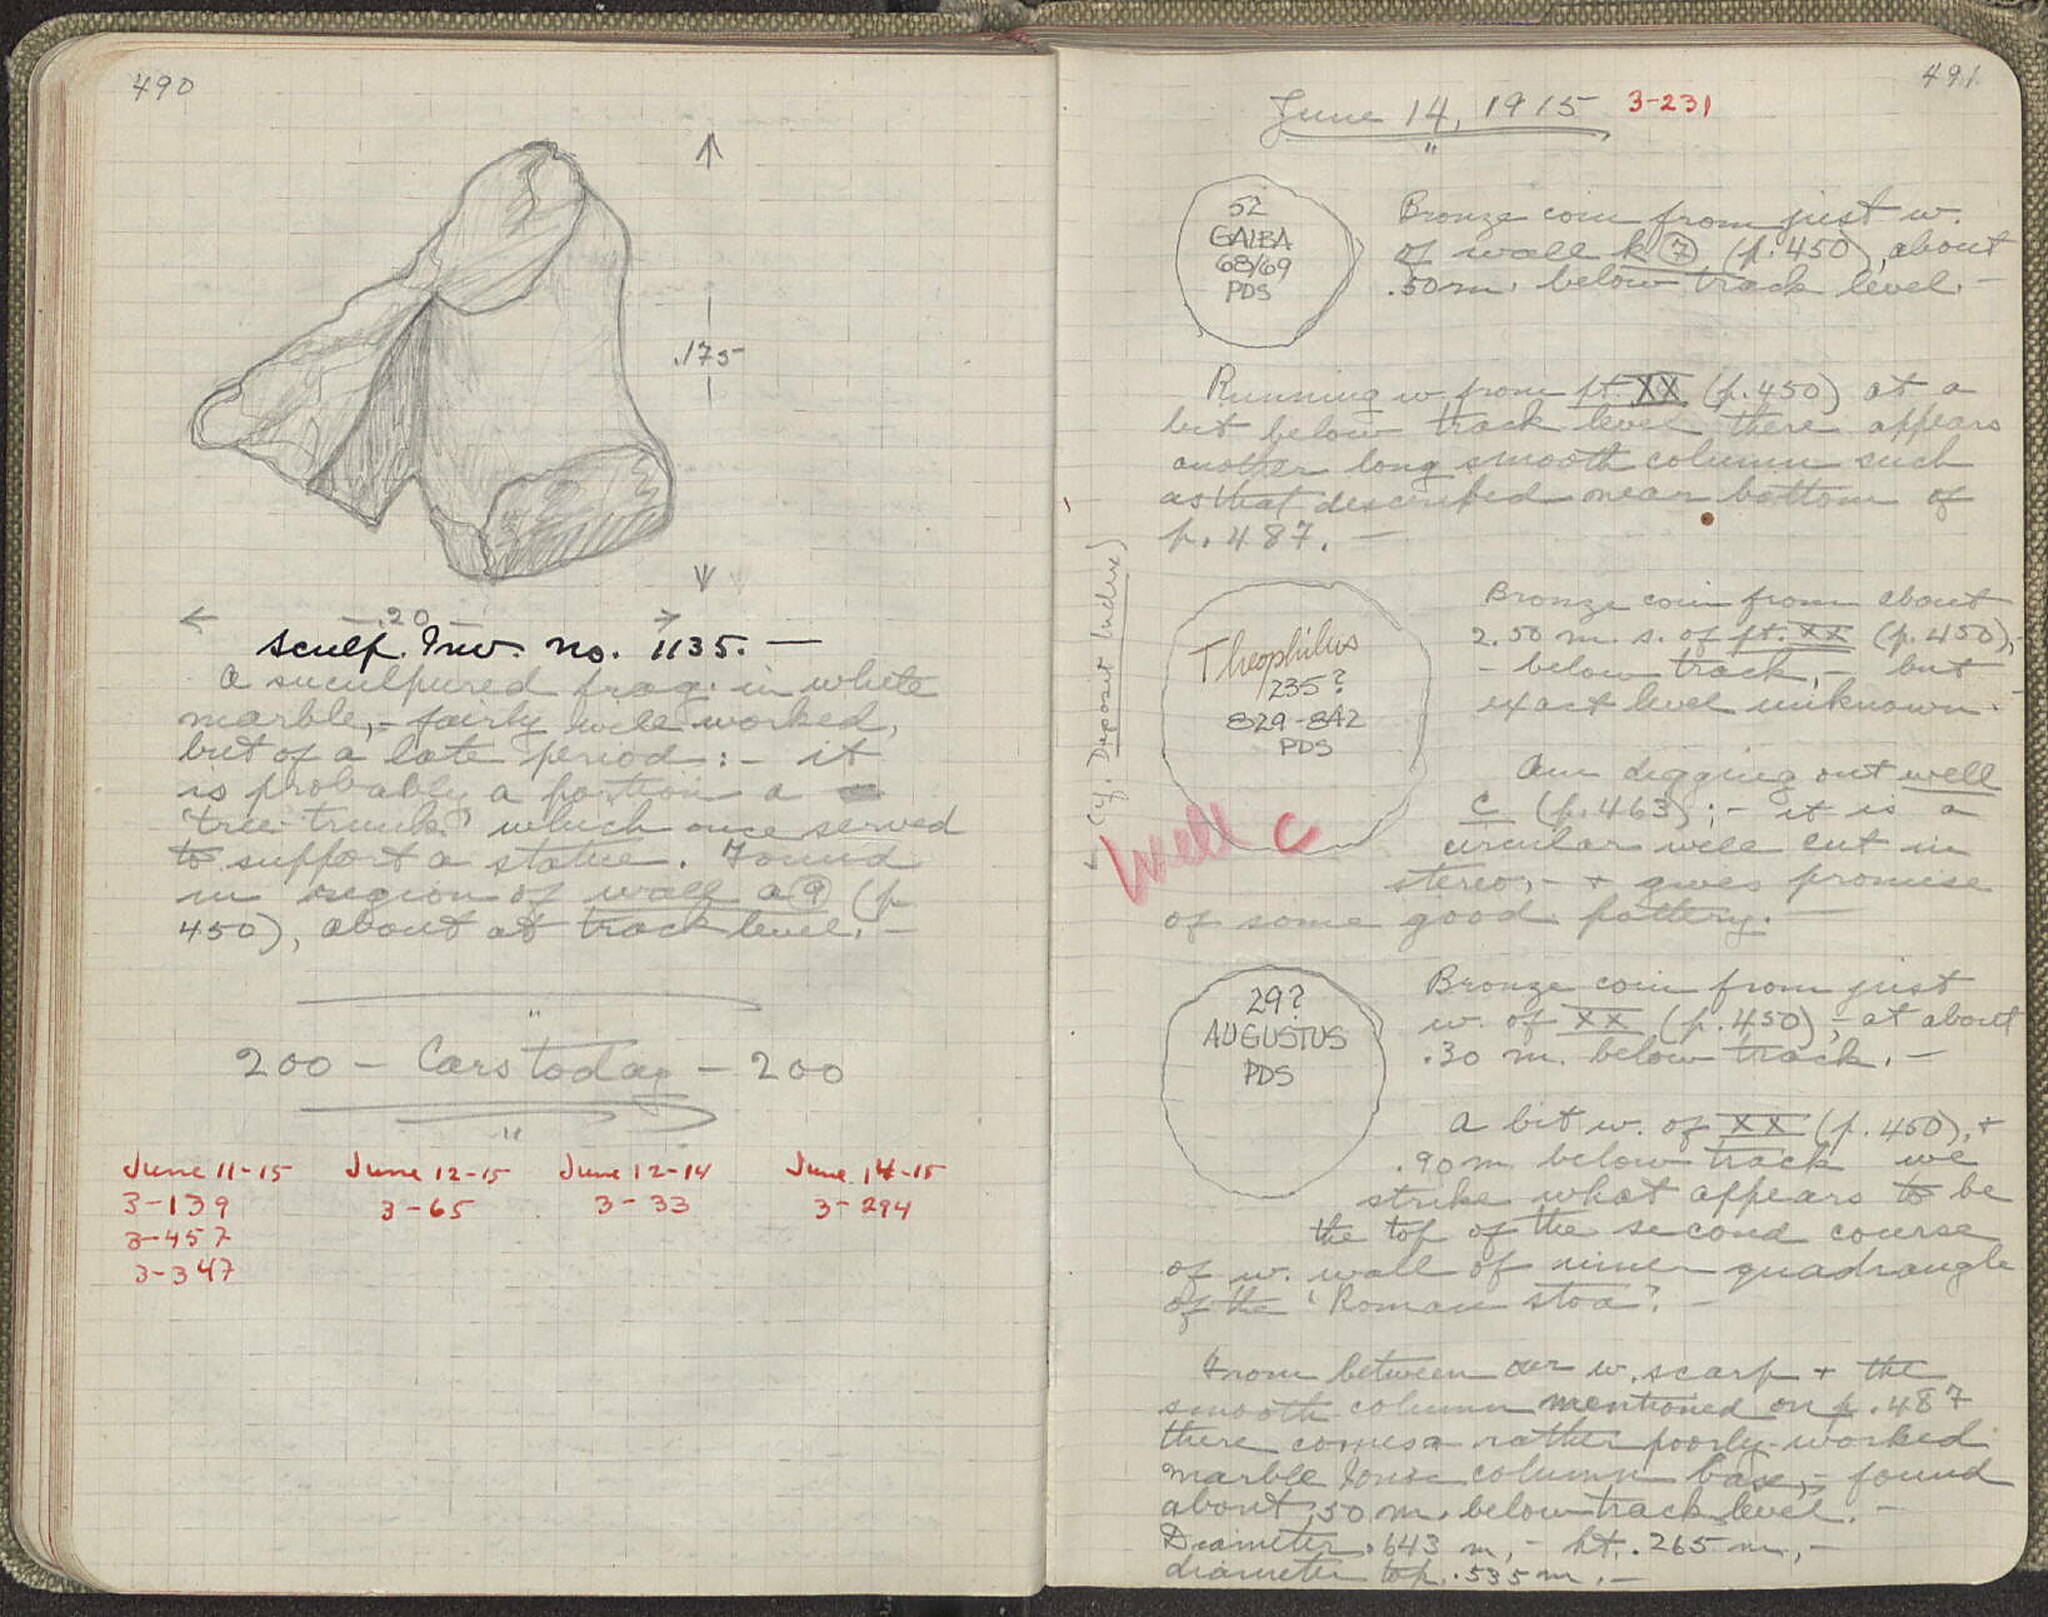 490
.175
.20
Sculp. Inv. no. 1135. —
A suculpured frag. in white
marble,- fairly well worked,
but of a late period :- it
is probably a portion a
'tree trunk' which once served
to support a statue. Found
in region of wall a 9 (p
450), about at track level. -
200 - Cars today - 200
June 11-15 June 12-15 June 12-14 June 14-15
3-139 3-65 3-33 3-294
3-457
3-347
491.
June 14, 1915 3-231
52
GALBA
68/69
PDS
Bronze coin from just w.
of wall k 7 (p. 450), about
.50 m. below track level. -
Running w from pt. XX (p. 450) at a
bit below track level there appears
another long smooth column such
as that described near bottom of
p. 487. -
(cf. Deposit Index)
Theophilus
235?
829-842
PDS
Bronze coin from about
2.50 m. s. of pt. XX (p. 450),-
- below track, - but
exact level unknown. -
Well C
Am digging out well
C (p. 463); - it is a
circular well cut in
stereo, - + gives promise
of some good pottery. -
29?
AUGUSTUS
PDS
Bronze coin from just
w. of XX (p. 450), - at about
.30 m. below track. -
A bit w. of XX (p. 450), +
.90 m below track we
strike what appears to be
the top of the second course
of w. wall of inner quadrangle
of the 'Roman stoa'. -
From between our w. scarp + the
smooth column mentioned on p. 487
there comes a rather poorly-worked
marble Ionic column base, - found
about .50 m. below track level. -
Diameter .643 m, - ht. .265 m, -
diameter top .535 m. -